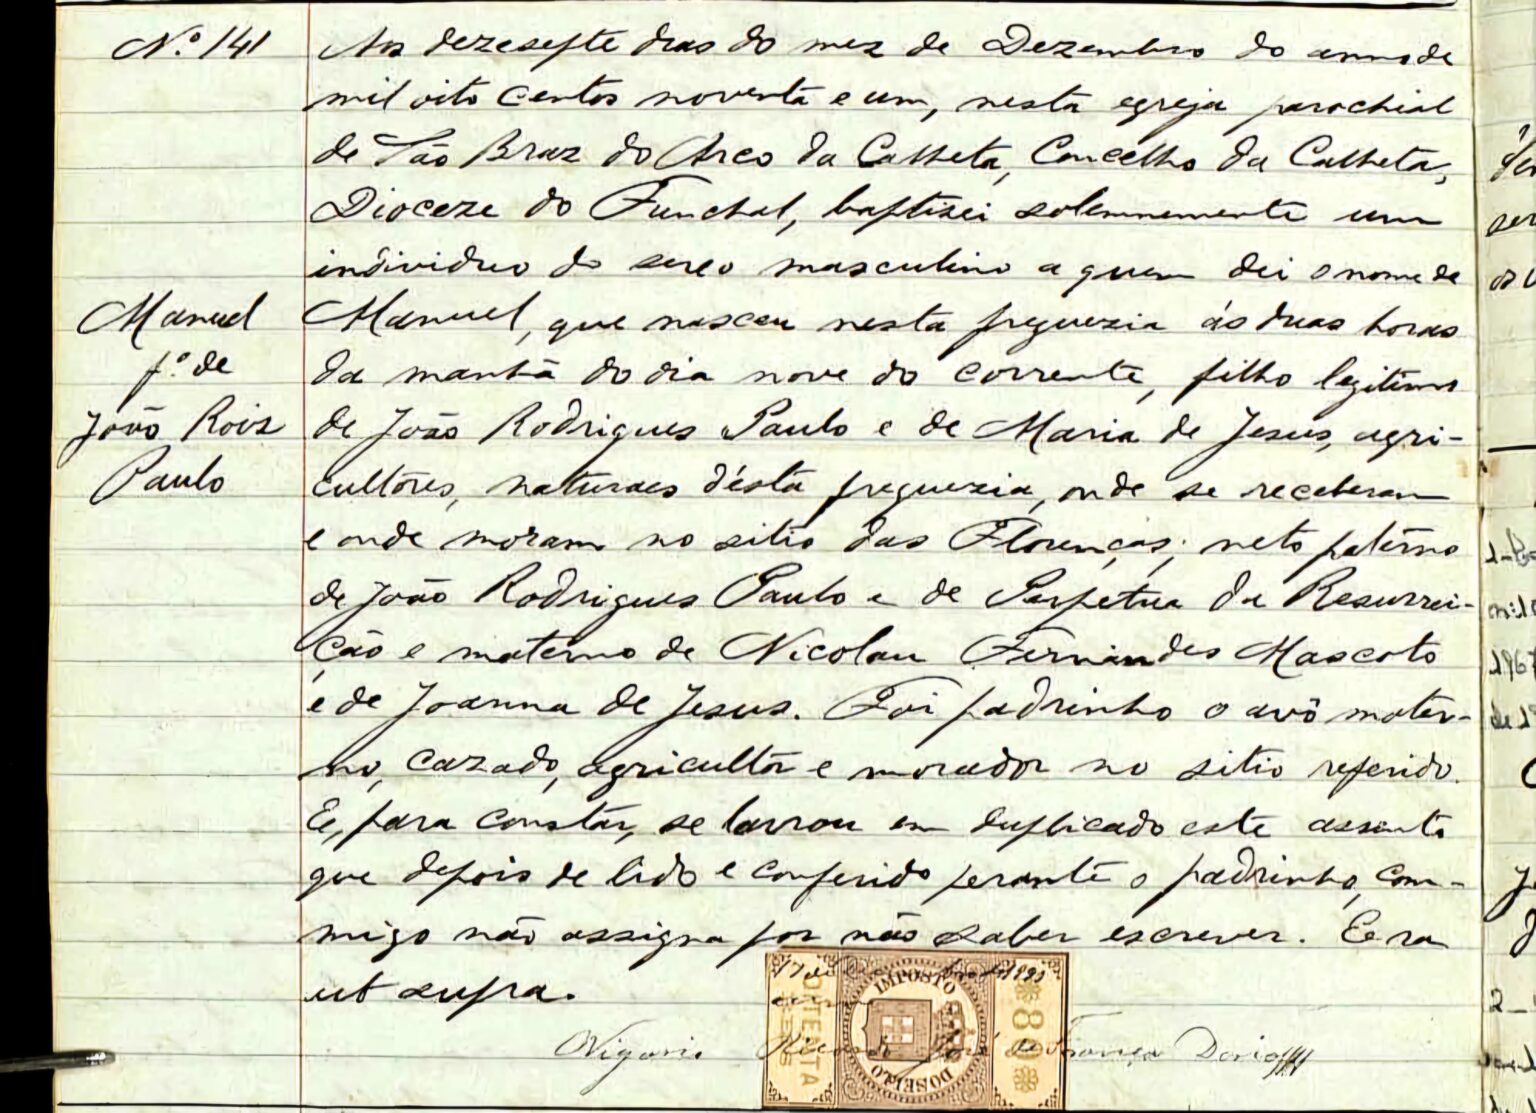 N.º 141
Aos dezesepte dias do mez de Dezembro do anno de
mil oito centos noventa e um, nesta egreja parochial
de São Braz do Arco da Calheta, Concelho da Calheta,
Dioceze do Funchal, baptisei solemnemente um
individuo do sexo masculino a quem dei o nome de
Manuel
f.º de
João Roiz
Paulo
Manuel, que nasceu nesta freguezia ás duas horas
da manhã do dia nove do corrente, filho legitimo
de João Rodrigues Paulo e de Maria de Jesus, agri-
cultores, naturaes d'ésta freguezia, onde se receberam
e onde moram no sitio das Florenças; neto paterno
de João Rodrigues Paulo e de Perpetua da Resurrei-
ção e materno de Nicolau Fernandes Mascoto
e de Joanna de Jesus. Foi padrinho o avô mater-
no, cazado, agricultor e morador no sitio referido.
E, para constar, se lavrou em duplicado este assento
que depois de lido e conferido perante o padrinho, com-
migo não assigna por não saber escrever. Era
ut supra.
17 de
IMPOSTO
DO SELLO
OITENTA
REIS
80
Vigario Ricardo José de França Doria